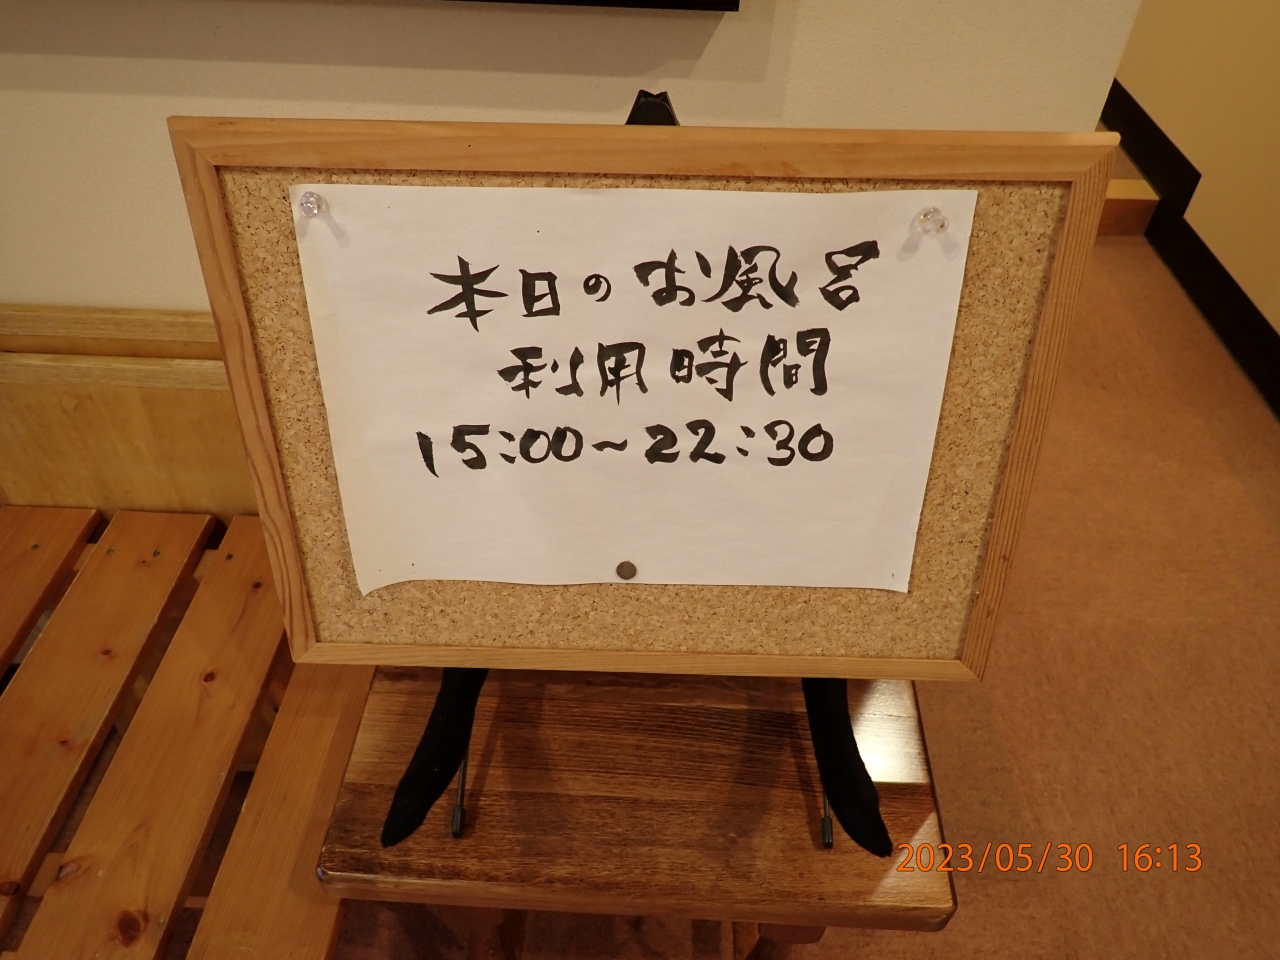 本日のお風呂
利用時間
15:00～22:30
2023/05/30 16:13